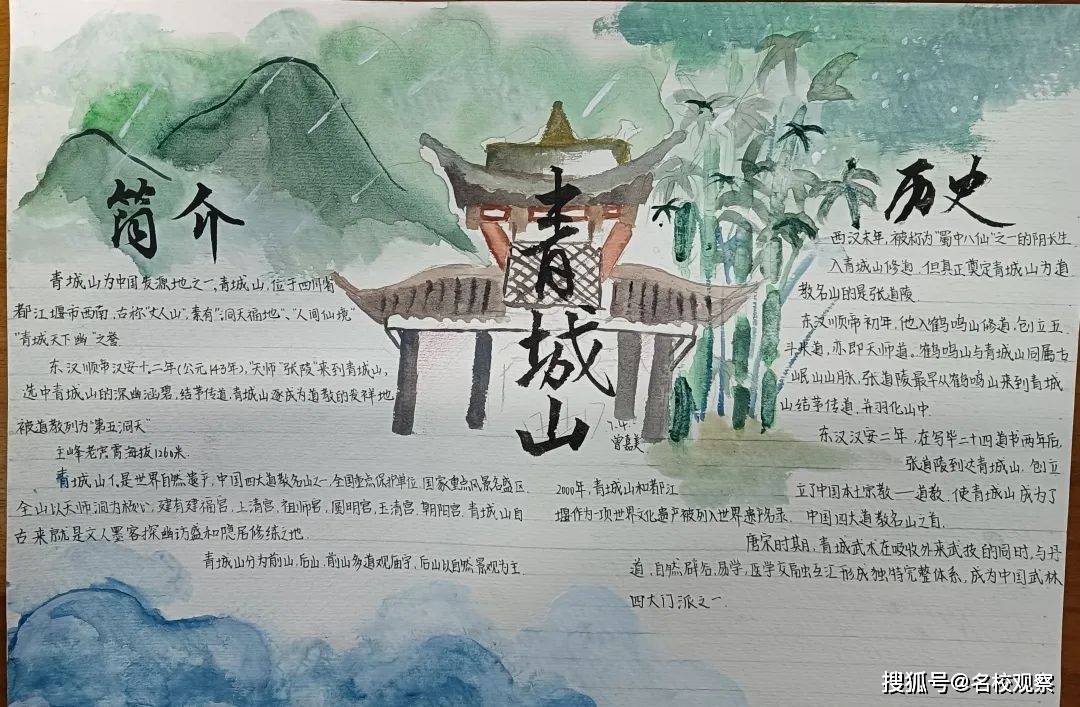 青城山
7.4.
曾嘉美
简介
青城山为中国发源地之一,青城山,位于四川省
都江堰市西南,古称"丈人山",素有"洞天福地"、"人间仙境"
"青城天下幽"之誉
东汉顺帝汉安十二年(公元143年),"天师"张陵"来到青城山,
选中青城山的深幽涵碧,结茅传道,青城山逐成为道教的发祥地,
被道教列为"第五洞天"
主峰老宫霄海拔1260米.
青城山不仅是世界自然遗产,中国四大道教名山之一,全国重点保护单位,国家重点风景名盛区,
全山以天师洞为核心,建有建福宫,上清宫,祖师宫,圆明宫,玉清宫,朝阳宫,青城山自
古来就是文人墨客探幽访盛和隐居修练之地.
青城山分为前山,后山,前山多道观庙宇,后山以自然景观为主.
2000年,青城山和都江
堰作为一项世界文化遗产被列入世界遗产名录.
历史
西汉末年,被称为"蜀中八仙"之一的阴长生
入青城山修道.但真正奠定青城山为道
教名山的是张道陵
东汉顺帝初年,他入鹤鸣山修道,创立五
斗米道,亦即天师道.鹤鸣山与青城山同属古
岷山山脉,张道陵最早从鹤鸣山来到青城
山结茅传道,并羽化山中.
东汉汉安二年,在写毕二十四道书两年后,
张道陵到达青城山,创立
立了中国本土宗教——道教,使青城山成为了
中国四大道教名山之首.
唐宋时期,青城武术在吸收外来武技的同时,与丹
道,自然辟谷,易学,医学交融互汇形成独特完整体系,成为中国武林
四大门派之一.
搜狐号@名校观察